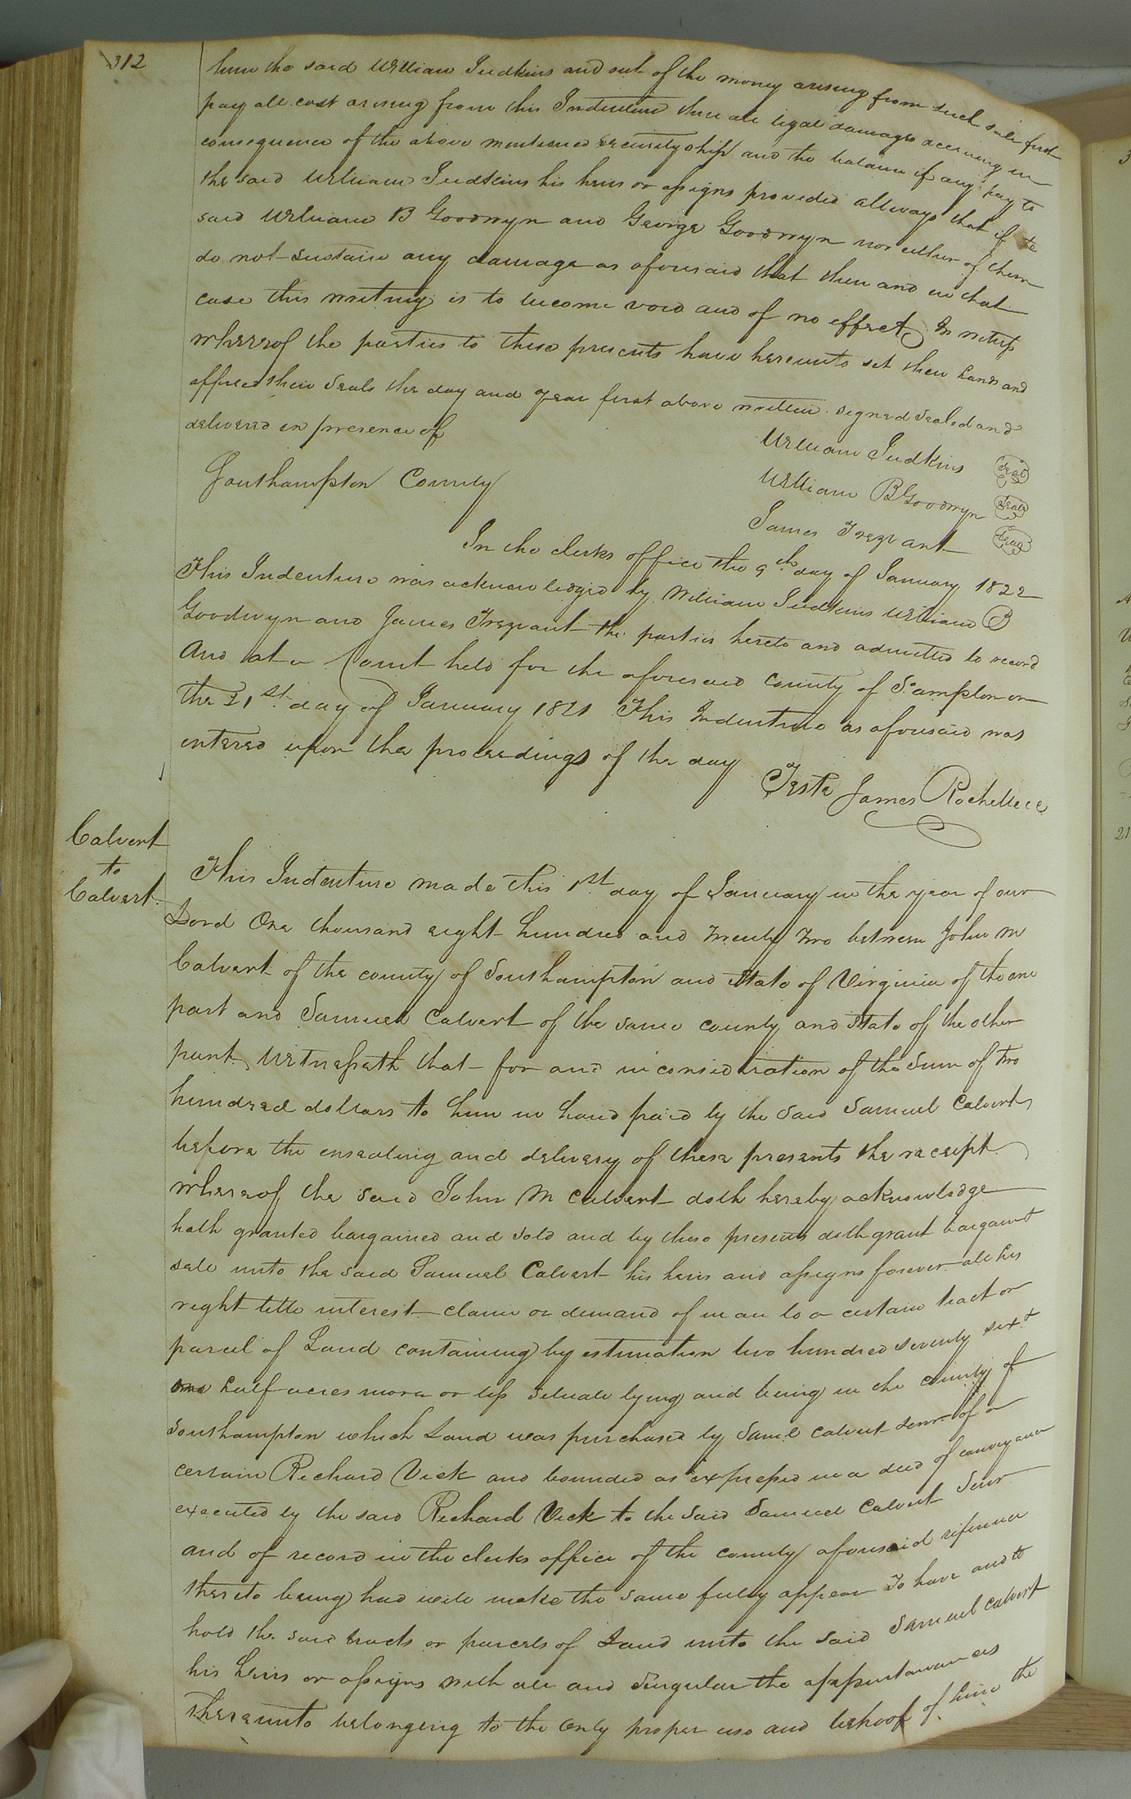 312
him the said William Judkins and out of the money arising from such sale first
pay all cost arising from this Indenture then all legal damages accruing in
consequence of the above mentioned securityship and the balance if any pay to
the said William Judkins his heirs or assigns provided allways that if the
said William B Goodwyn and George Goodwyn nor either of them
do not sustain any damage as aforesaid that then and in that
case this writing is to become void and of no effect In witness
whereof the parties to these presents have hereunto set their hands and
affixed their Seals the day and year first above written signed sealed and
delivered in presence of
William Judkins Seal
William B Goodwyn Seal
James Trezvant Seal
Southampton County
In the clerks office the 9th day of January 1822
This Indenture was acknowledged by William Judkins William B
Goodwyn and James Trezvant the parties hereto and admitted to record
And at a Court held for the aforesaid county of S.ampton on
the 21st day of January 1821 This Indenture as aforesaid was
entered upon the proceedings of the day
Teste James Rochelle
Calvert
to
Calvert
This Indenture made this 1st day of January in the year of our
Lord One thousand eight hundred and twenty two between John M
Calvert of the county of Southampton and State of Virginia of the one
part and Samuel Calvert of the same county and State of the other
part Witnesseth that for and in consideration of the Sum of two
hundred dollars to him in hand paid by the said Samuel Calvert
before the ensealing and delivery of these presents the receipt
whereof the said John M Calvert doth hereby acknowledge
hath granted bargained and sold and by these presents doth grant bargain &
sell unto the said Samuel Calvert his heirs and assigns forever all his
right title interest claim or demand of in an to a certain tract or
parcel of Land containing by estimation two hundred seventy six &
one half acres more or less situate lying and being in the county of
Southampton which Land was purchased by Saml Calvert senr of a
certain Richard Vick and bounded as expressed in a deed of conveyance
executed by the said Richard Vick to the said Samuel Calvert Senr
and of record in the clerks office of the county aforesaid reference
thereto being had will make the same fully appear To have and to
hold the said tracts or parcels of Land unto the said Samuel Calvert
his heirs or assigns with all and Singular the appurtenances
thereunto belonging to the only proper use and behoof of him the